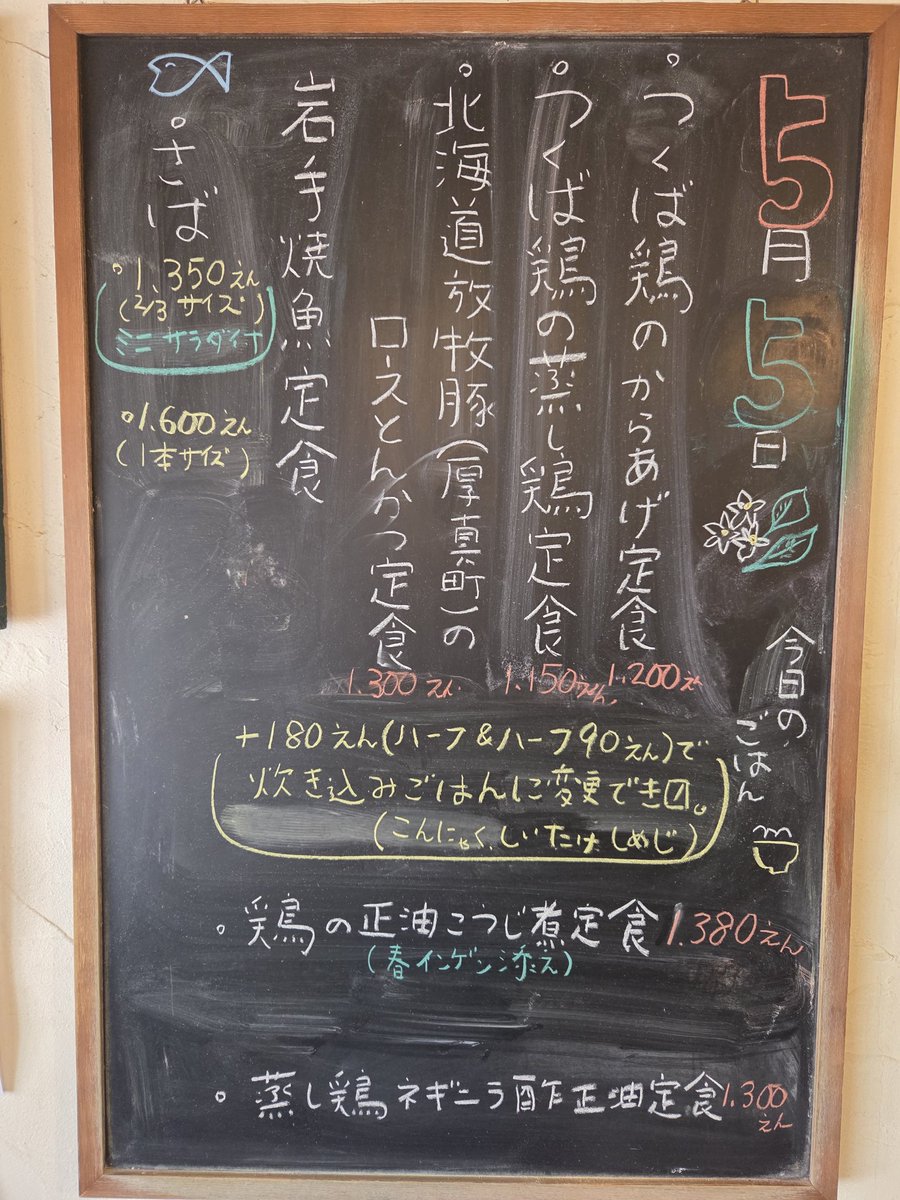 5月5日
今日の
ごはん
・つくば鶏のからあげ定食
1.200え
・つくば鶏の蒸し鶏定食
1.150えん
・北海道放牧豚(厚真町)の
ロースとんかつ定食
1.300えん
岩手焼魚定食
・さば
・1.350えん
(2/3サイズ)
ミニサラダイナ
・1.600えん
(1本サイズ)
+180えん(ハーフ&ハーフ90えん)で
炊き込みごはんに変更でき〼。
(こんにゃく、しいたけ、しめじ)
・鶏の正油こうじ煮定食 1.380えん
(春インゲン添え)
・蒸し鶏ネギニラ酢正油定食 1.300
えん